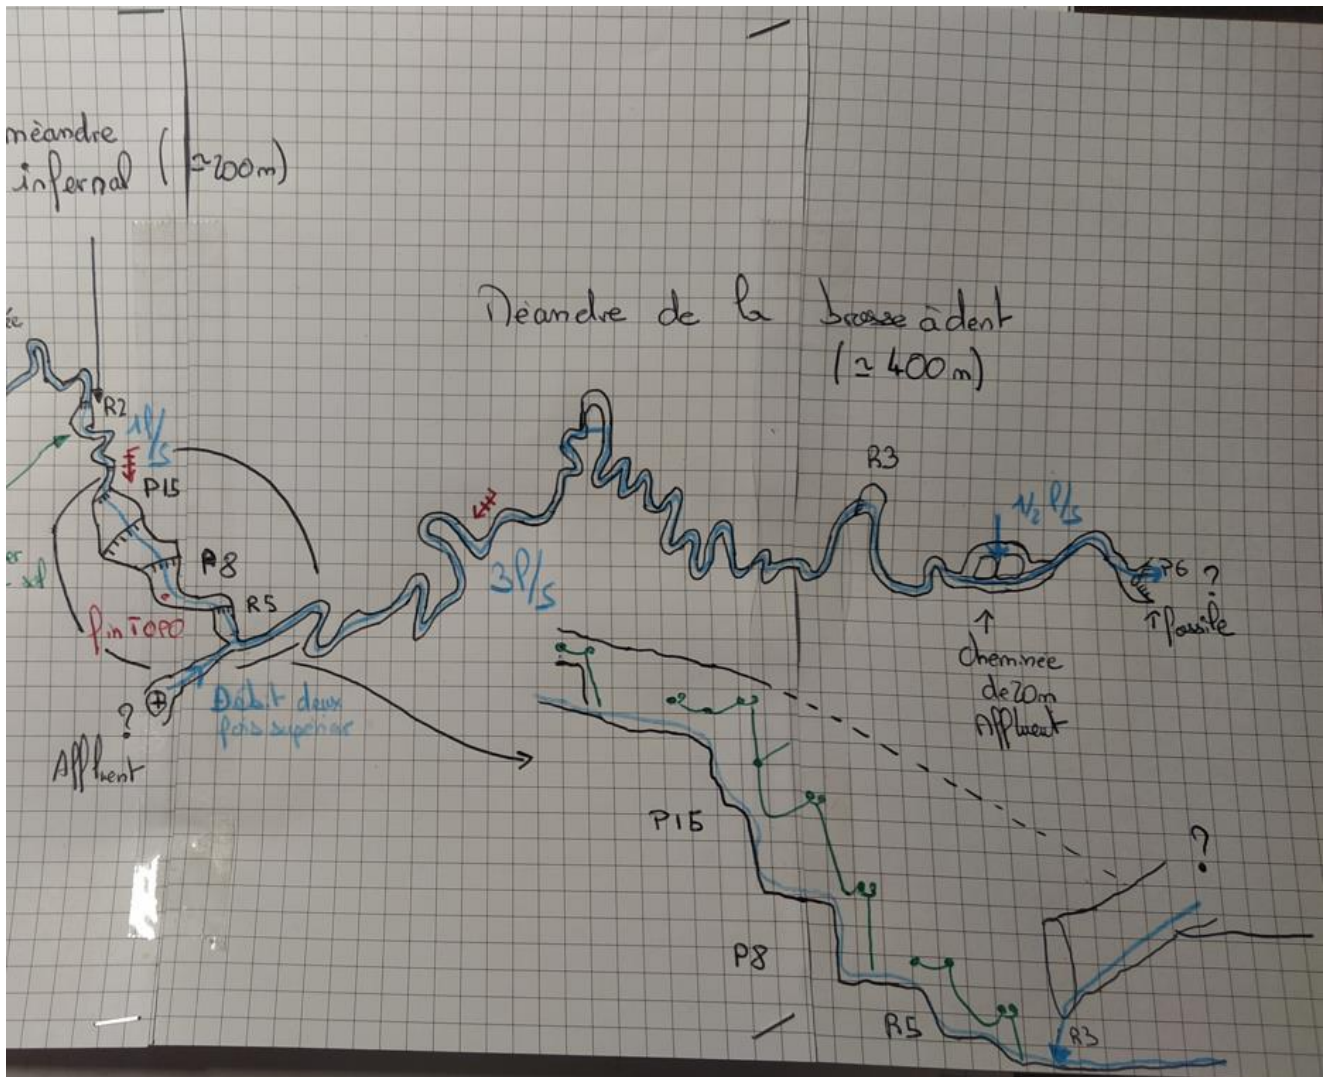 méandre
infernal (≃200m)
Méandre de la brosse à dent
(≃ 400m)
R2
1l/s
P15
P8
R5
fin TOPO
Débit deux
fois supérieur
?
Affluent
3l/s
R3
1/2 l/s
P6 ?
↑ fossile
↑
Cheminée
de 20m
Affluent
P15
P8
R5
R3
?